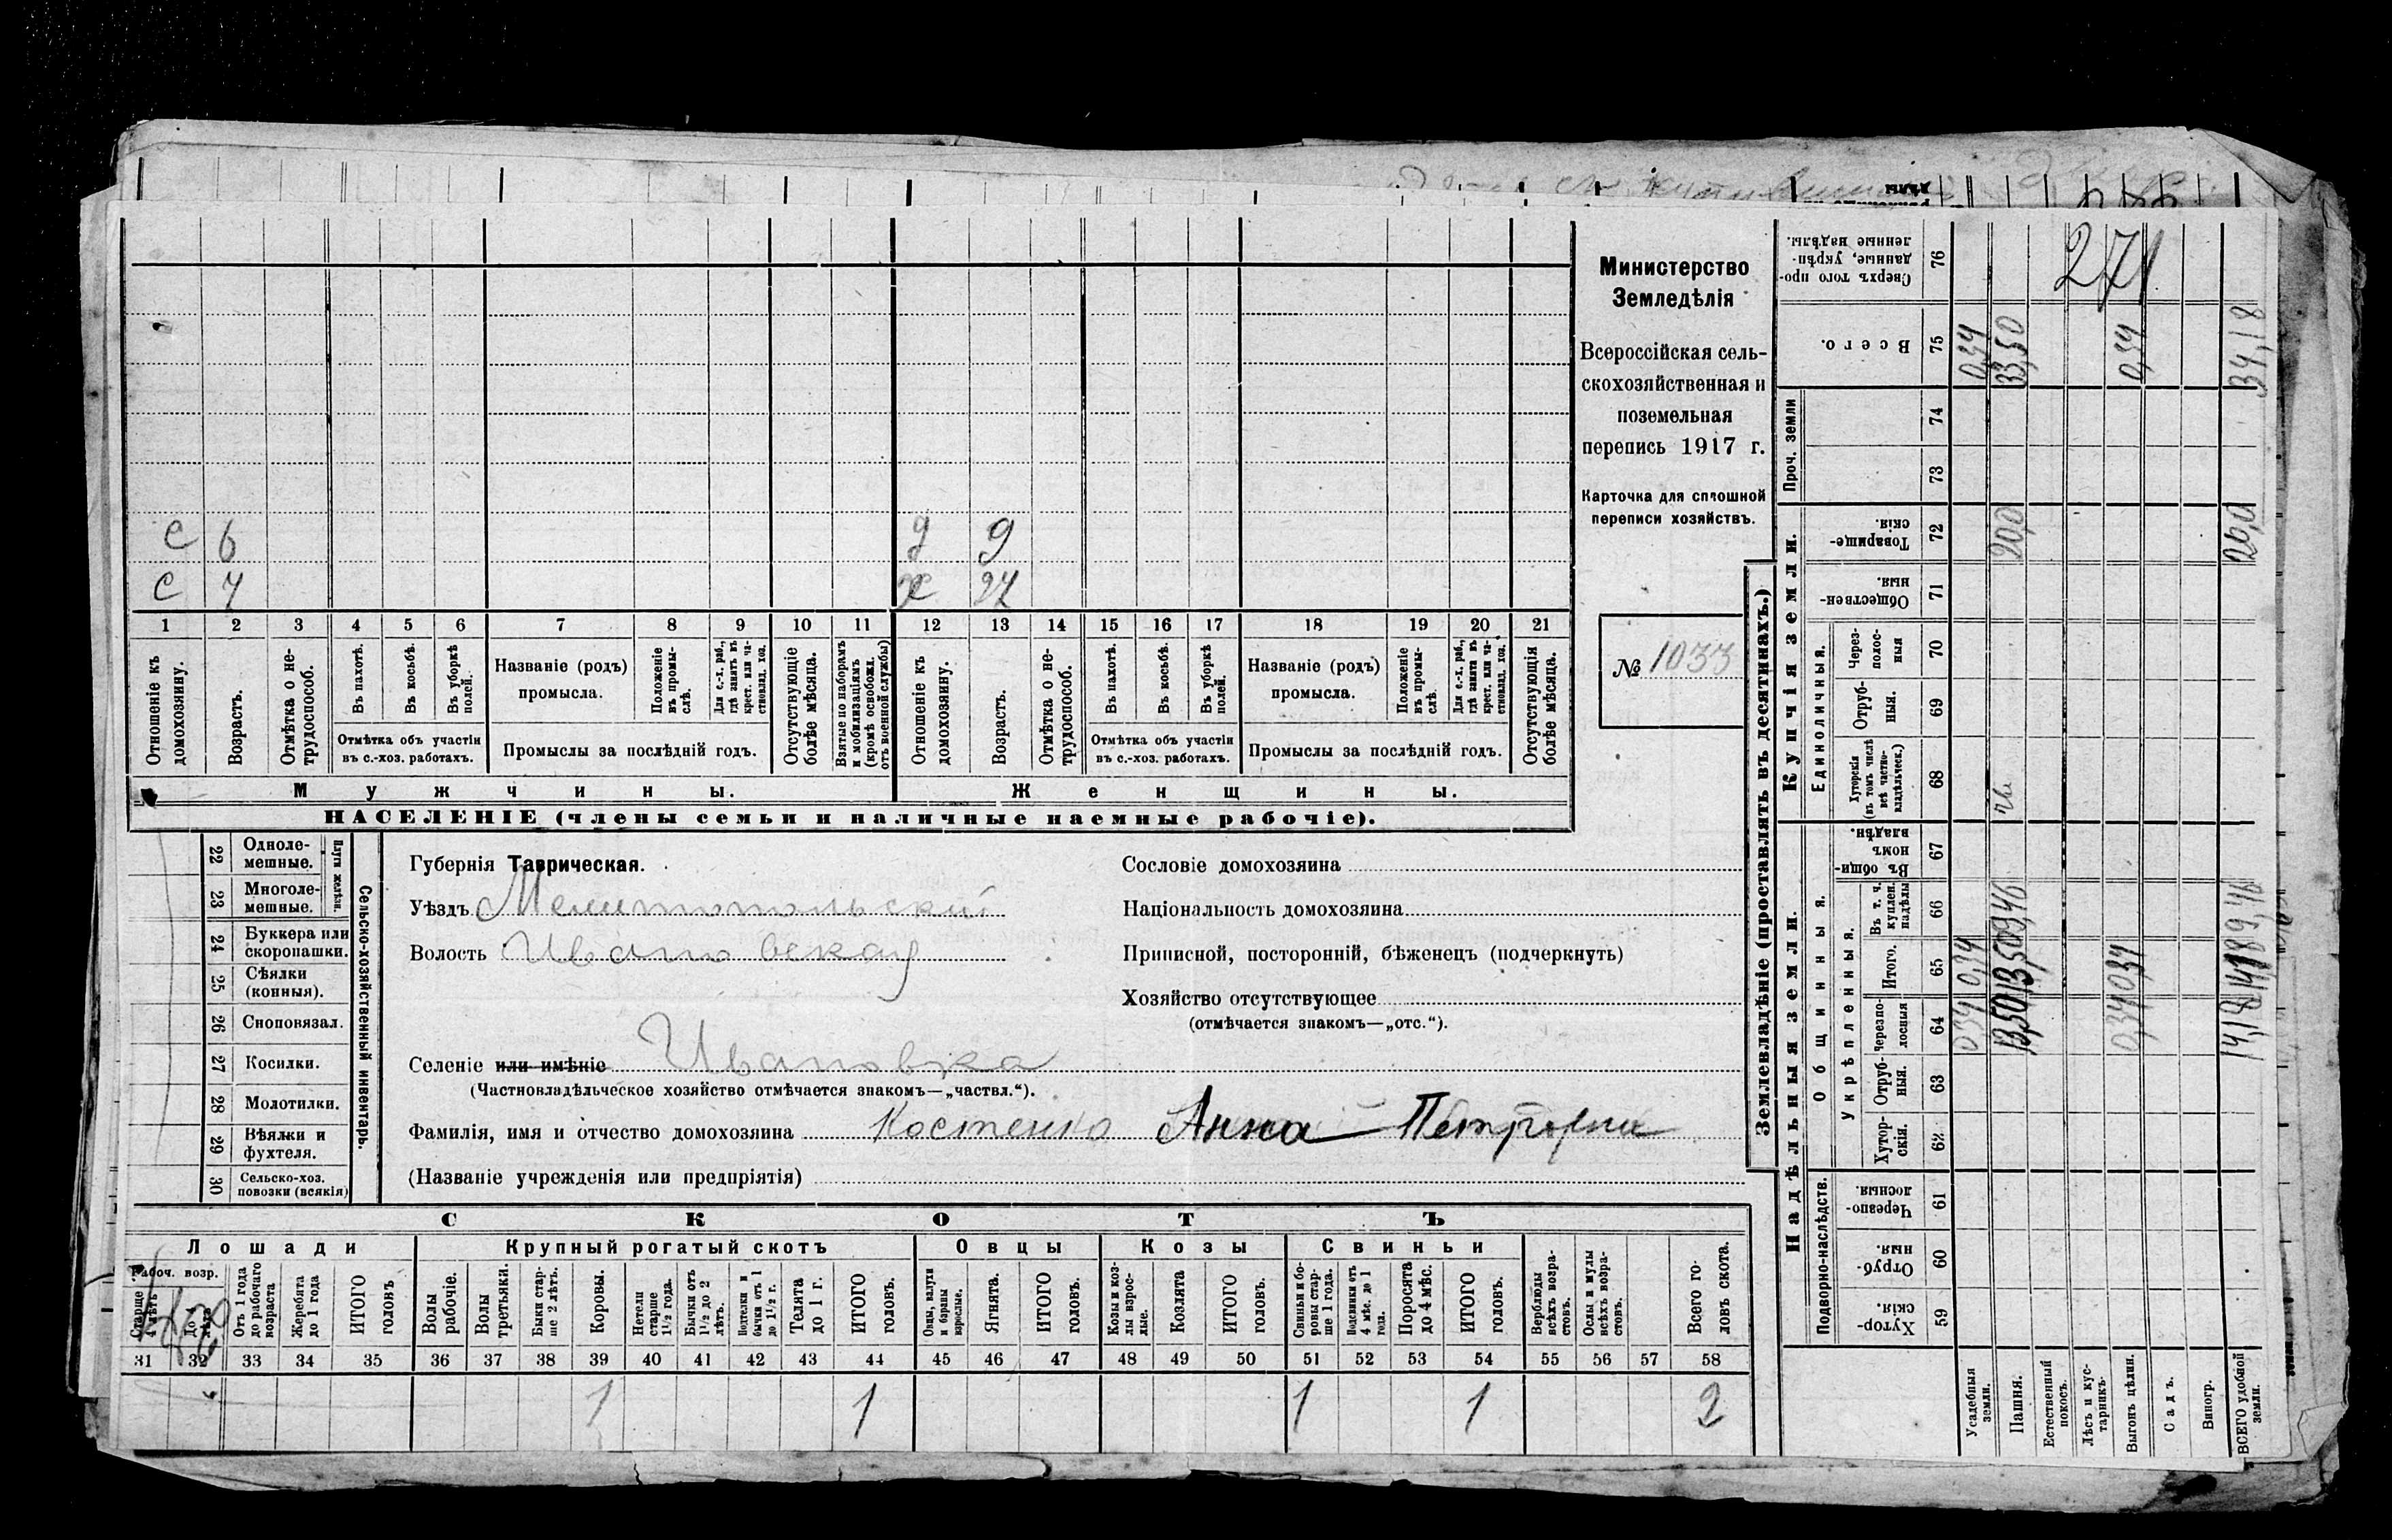 Министерство
Земледѣлія
Всероссійская сель-
скохозяйственная и
поземельная
перепись 1917 г.
Карточка для сплошной
переписи хозяйствъ.
№ 1033
с 6 д 9
с 4 ж 27
1 2 3 4 5 6 7 8 9 10 11 12 13 14 15 16 17 18 19 20 21
Отношеніе къ домохозяину.
Возрастъ.
Отмѣтка о не-трудоспособ.
Въ пахотѣ.
Въ косьбѣ.
Въ уборкѣ полей.
Отмѣтка объ участіи
въ с.-хоз. работахъ.
Названіе (родъ)
промысла.
Положеніе въ промы-слѣ.
Для с.-х. раб., гдѣ занятъ въ крест. или ча-стновлад. хоз.
Промыслы за послѣдній годъ.
Отсутствующіе болѣе мѣсяца.
Взятые по наборамъ и мобилизаціямъ (кромѣ освобожд. отъ военной службы)
Отношеніе къ домохозяину.
Возрастъ.
Отмѣтка о не-трудоспособ.
Въ пахотѣ.
Въ косьбѣ.
Въ уборкѣ полей.
Отмѣтка объ участіи
въ с.-хоз. работахъ.
Названіе (родъ)
промысла.
Положеніе въ промы-слѣ.
Для с.-х. раб., гдѣ занята въ крест. или ча-стновлад. хоз.
Промыслы за послѣдній годъ.
Отсутствующія болѣе мѣсяца.
Мужчины. Женщины.
НАСЕЛЕНІЕ (члены семьи и наличные наемные рабочіе).
22 Одноле-мешные.
23 Многоле-мешные.
Плуги желѣзн.
24 Буккера или скоропашки.
25 Сѣялки (конныя).
26 Сноповязал.
27 Косилки.
28 Молотилки.
29 Вѣялки и фухтеля.
30 Сельско-хоз. повозки (всякія)
Сельско-хозяйственный инвентарь.
Губернія Таврическая.
Уѣздъ Мелитопольскій
Волость Ивановская
Селеніе или имѣніе Ивановка
(Частновладѣльческое хозяйство отмѣчается знакомъ—„частвл.“).
Фамилія, имя и отчество домохозяина Костенко Анна Петровна
(Названіе учрежденія или предпріятія)
Сословіе домохозяина
Національность домохозяина
Приписной, посторонній, бѣженецъ (подчеркнуть)
Хозяйство отсутствующее
(отмѣчается знакомъ—„отс.“).
СКОТЪ
Лошади Крупный рогатый скотъ Овцы Козы Свиньи
Рабоч. возр.
Старше 4 лѣтъ
Отъ 1 года до рабочаго возраста
Жеребята до 1 года
ИТОГО головъ
Волы рабочіе.
Волы третьяки.
Быки стар-ше 2 лѣтъ.
Коровы.
Нетели старше 1½ года.
Бычки отъ 1½ до 2 лѣтъ.
Подтелки и бычки отъ 1 до 1½ г.
Телята до 1 г.
ИТОГО головъ.
Овцы, валухи и бараны взрослые.
Ягнята.
ИТОГО головъ.
Козы и коз-лы взрос-лые.
Козлята
ИТОГО головъ.
Свиньи и бо-ровы стар-ше 1 года.
Подсвинки отъ 4 мѣс. до 1 года.
Поросята до 4 мѣс.
ИТОГО головъ.
Верблюды всѣхъ возра-стовъ.
Ослы и мулы всѣхъ возра-стовъ.
Всего го-ловъ скота.
31 32 33 34 35 36 37 38 39 40 41 42 43 44 45 46 47 48 49 50 51 52 53 54 55 56 57 58
1 1 1 1 2
Землевладѣніе (проставлять въ десятинахъ.)
Надѣльныя земли. Купчія земли.
Подворно-наслѣдств.
Общинныя.
Укрѣпленныя.
Единоличныя.
Проч. земли
Хутор-скія 59
Отруб-ныя. 60
Черезпо-лосныя. 61
Хутор-скія. 62
Отруб-ныя. 63
Черезпо-лосныя 64 0,34 13,50 0,34 14,18
Итого. 65 0,34 13,50 0,34 14,18
Въ т. ч. куплен. надѣлы 66 9,46 9,46
Въ общи-номъ владѣн. 67
Хуторскія (въ томъ числѣ всѣ частно-владѣльческ.) 68
Отруб-ныя. 69
Через-полос-ныя 70
Обществен-ныя. 71
Товарище-скія. 72 20,0 20,0
73
74
Всего. 75 0,34 33,50 0,34 34,18
Сверхъ того про-данные, укрѣп-ленные надѣлы. 76
271
Усадебныя земли.
Пашня.
Естественный покосъ.
Лѣсъ и кус-тарникъ.
Выгонъ цѣлин.
Садъ.
Виногр.
ВСЕГО удобной земли.